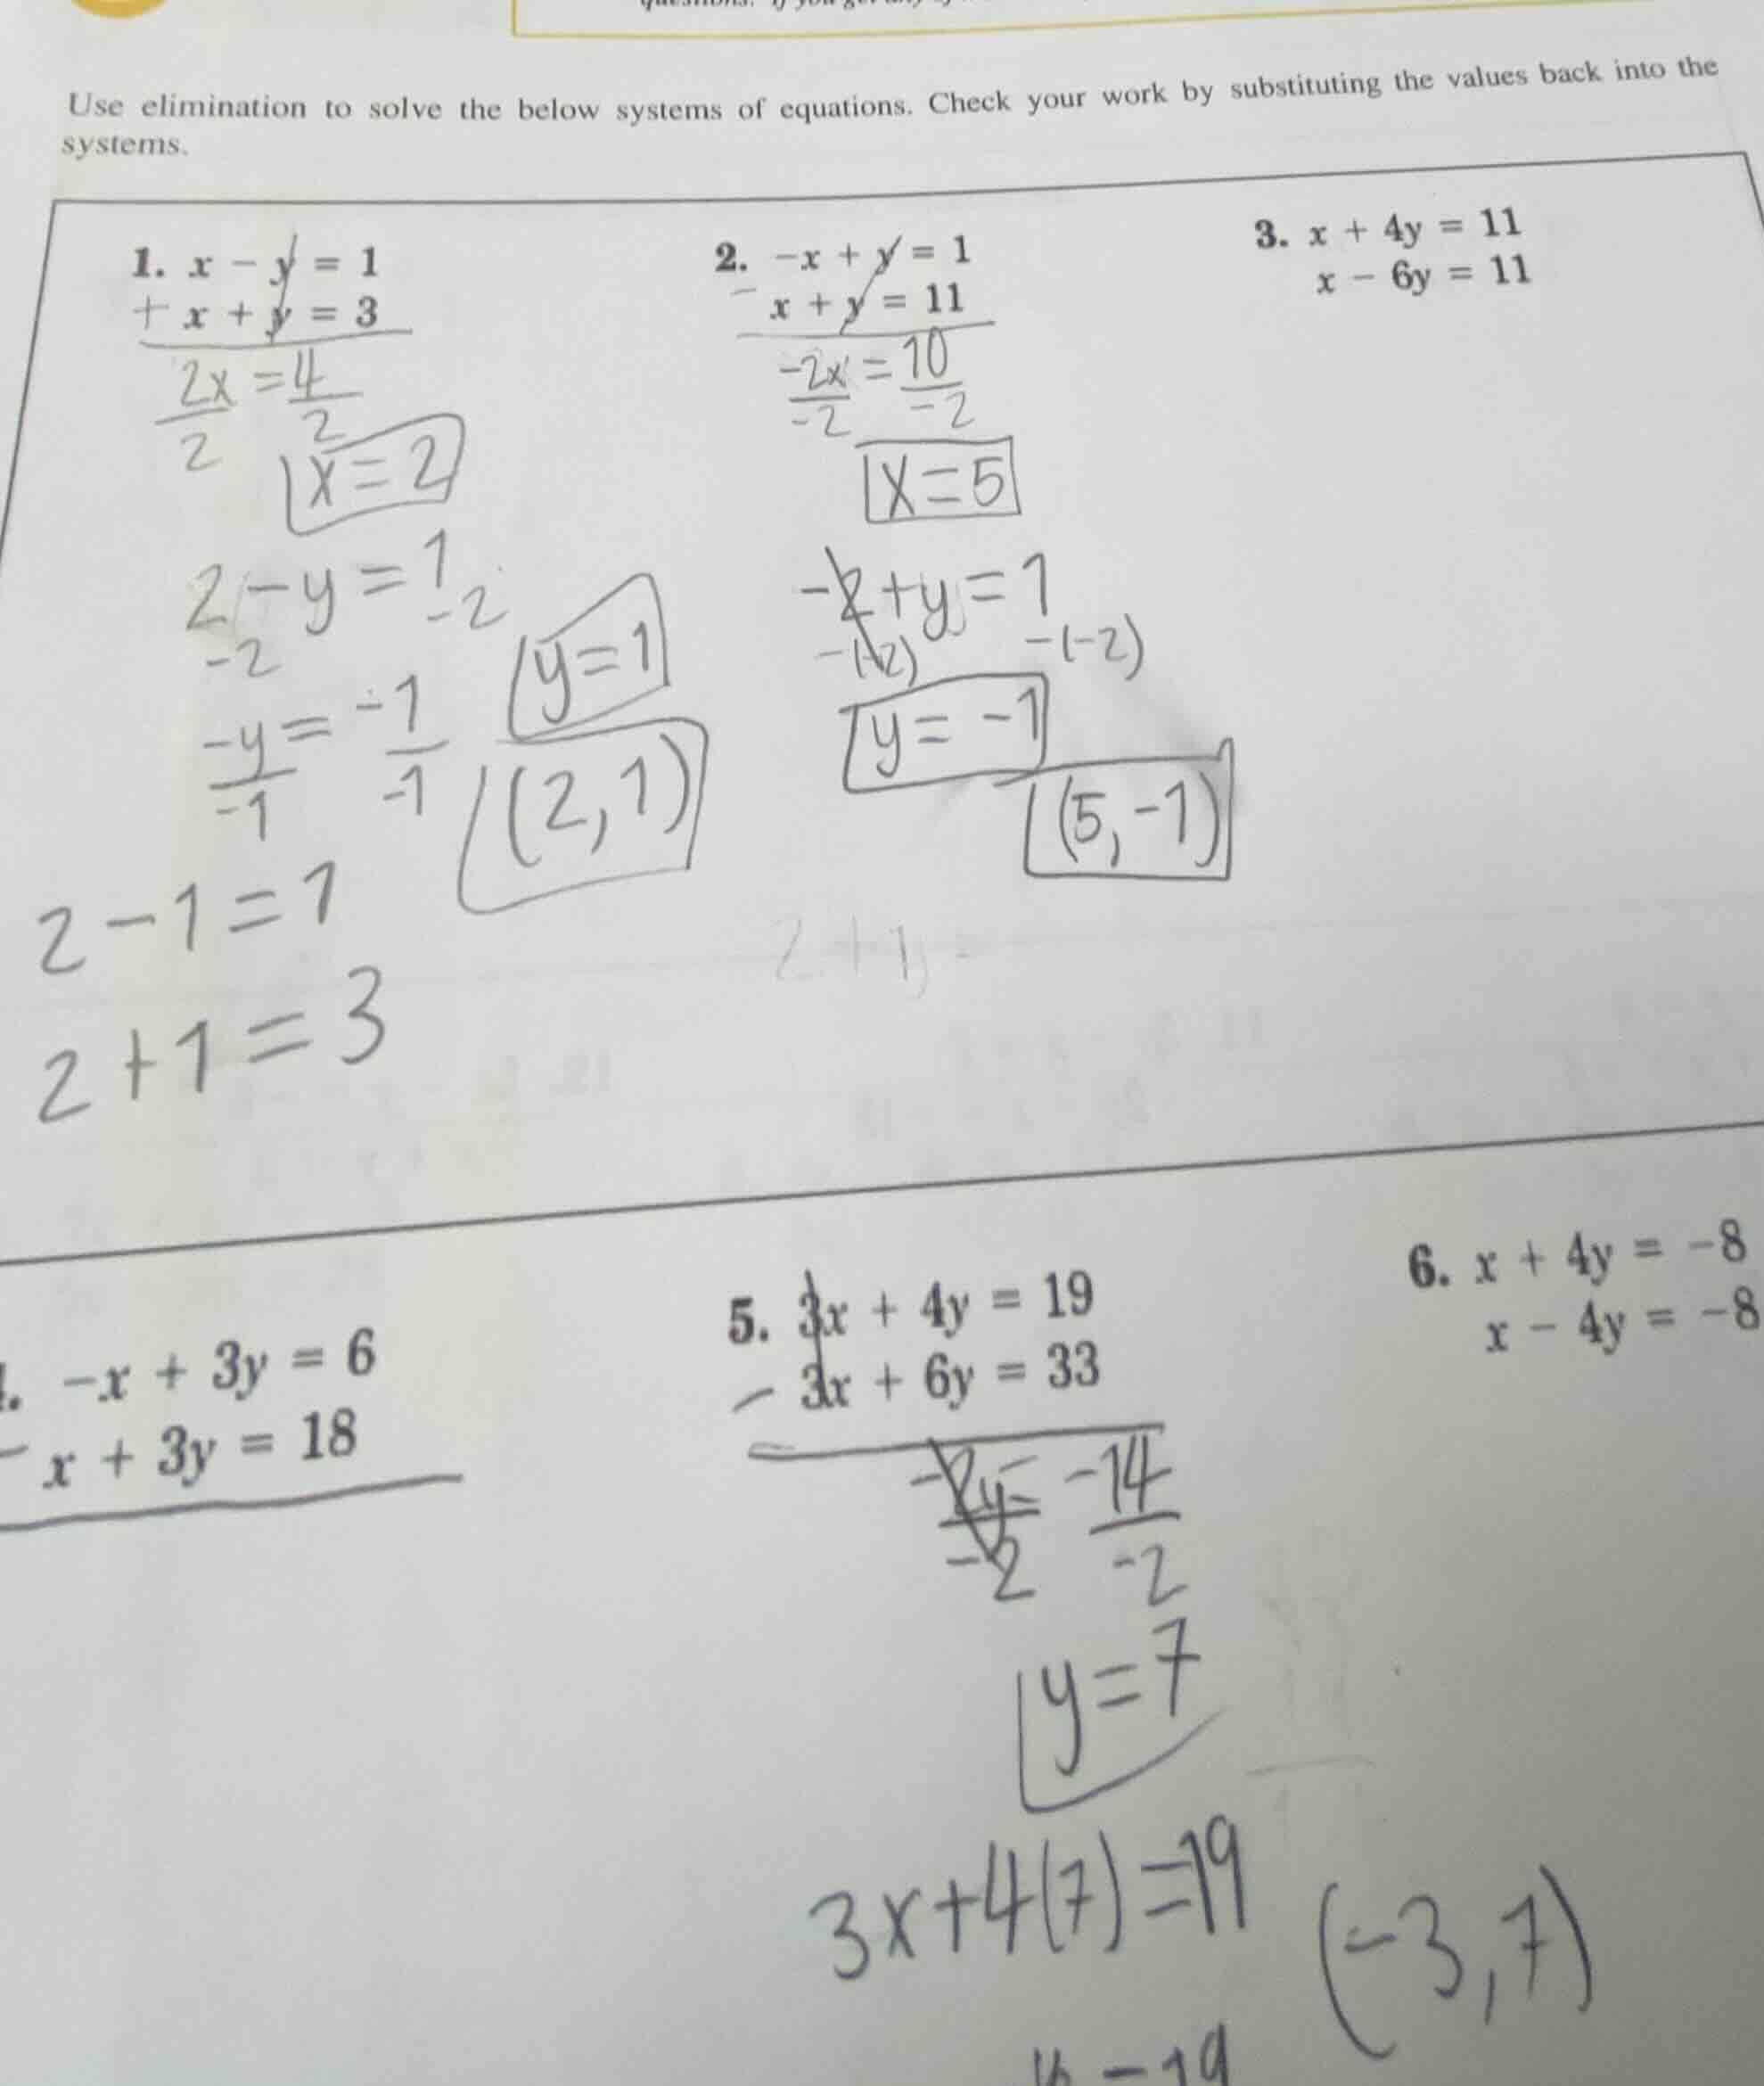 Use elimination to solve the below systems of equations. Check your work by substituting the values back into the
systems.
1. x - y = 1
+ x + y = 3
2x = 4
2 2
x = 2
2 - y = 1
-2 -2
-y = -1
-1 -1
y = 1
(2, 1)
2 - 1 = 1
2 + 1 = 3
2. -x + y = 1
- x + y = 11
-2x = 10
-2 -2
x = 5
-2 + y = 1
-(-2) -(-2)
y = -1
(5, -1)
2 + y =
3. x + 4y = 11
x - 6y = 11
-x + 3y = 6
- x + 3y = 18
5. 3x + 4y = 19
- 3x + 6y = 33
-2y = -14
-2 -2
y = 7
3x + 4(7) = 19
(-3, 7)
6. x + 4y = -8
x - 4y = -8